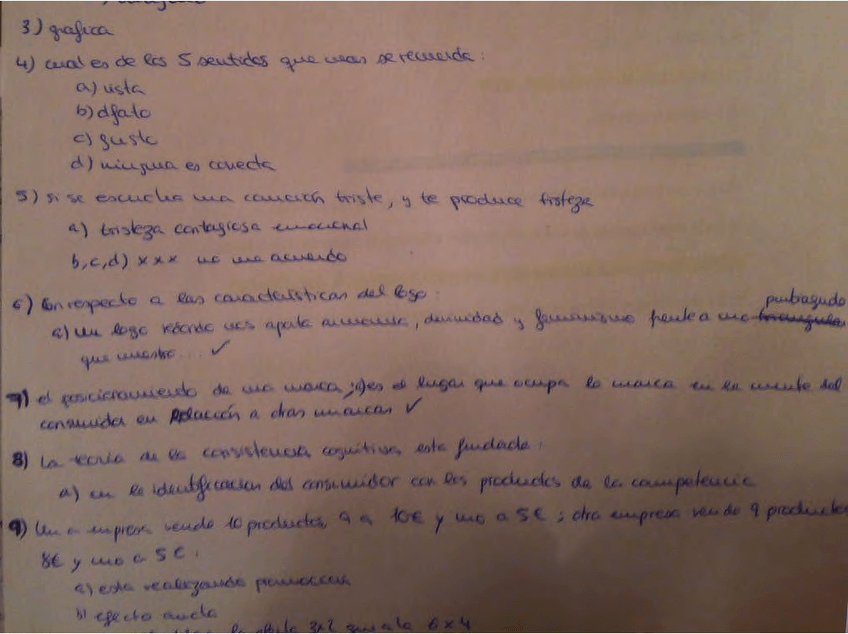 3) grafica
4) cual es de los 5 sentidos que mas se recuerda:
a) vista
b) olfato
c) gusto
d) ninguna es correcta
5) si se escucha una canción triste, y te produce tristeza
a) tristeza contagiosa emocional
b, c, d) x x x no me acuerdo
6) Con respecto a las características del logo:
puntiagudo
a) un logo redondo nos aporta armonia, y feminismo frente a uno
que muestra.... ✓
7) el posicionamiento de una marca; es el lugar que ocupa la marca en la mente del
consumidor en relación a otras marcas ✓
8) La teoría de la consistencia cognitiva esta fundada:
a) en la identificacion del consumidor con los productos de la competencia
9) Una empresa vende 10 productos, 9 a 10€ y uno a 5€; otra empresa vende 9 productos
8€ y uno a 5€.
a) esta realizando promocion
b) efecto ancla
3x2 6x4